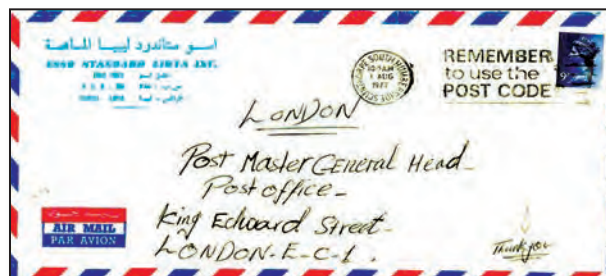 اسو ستاندرد ليبيا
ESSO STANDARD LIBYA INC.
SOUTH
10-15AM
1 AUG
1977
REMEMBER
to use the
POST CODE
9
LONDON
Post Master General Head
Post office -
King Edward Street -
LONDON - E - C - 1 .
AIR MAIL
PAR AVION
Thank you